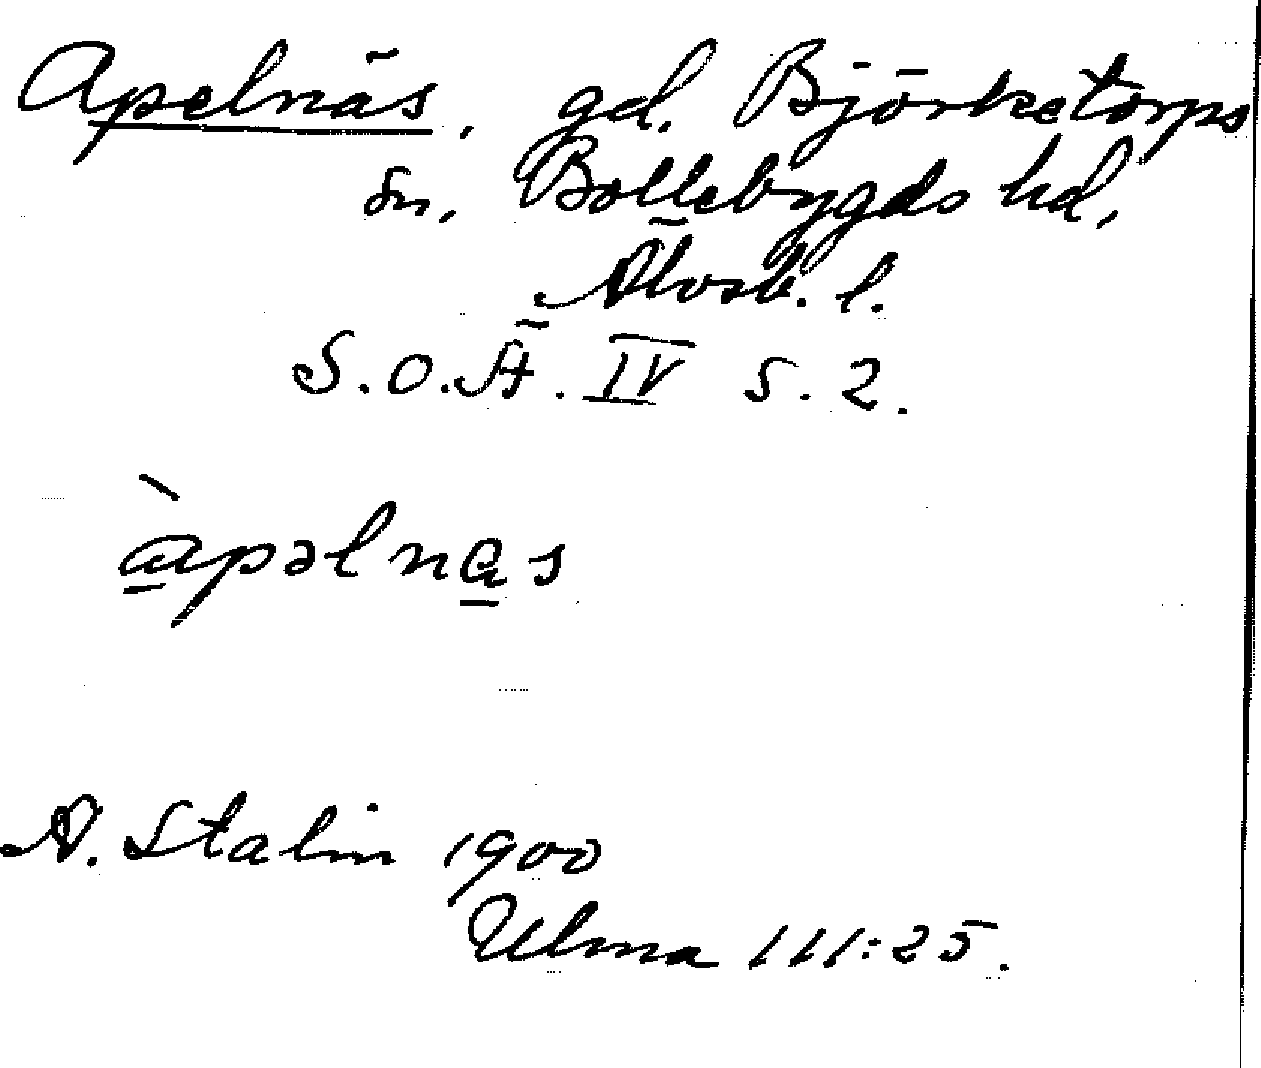 Apelnäs, gd. Björketorps
sn, Bollebygds hd,
Älvsb. l.
S.O.Ä. IV s. 2.
àpəlnas
A. Stalin 1900
Ulma 111:25.